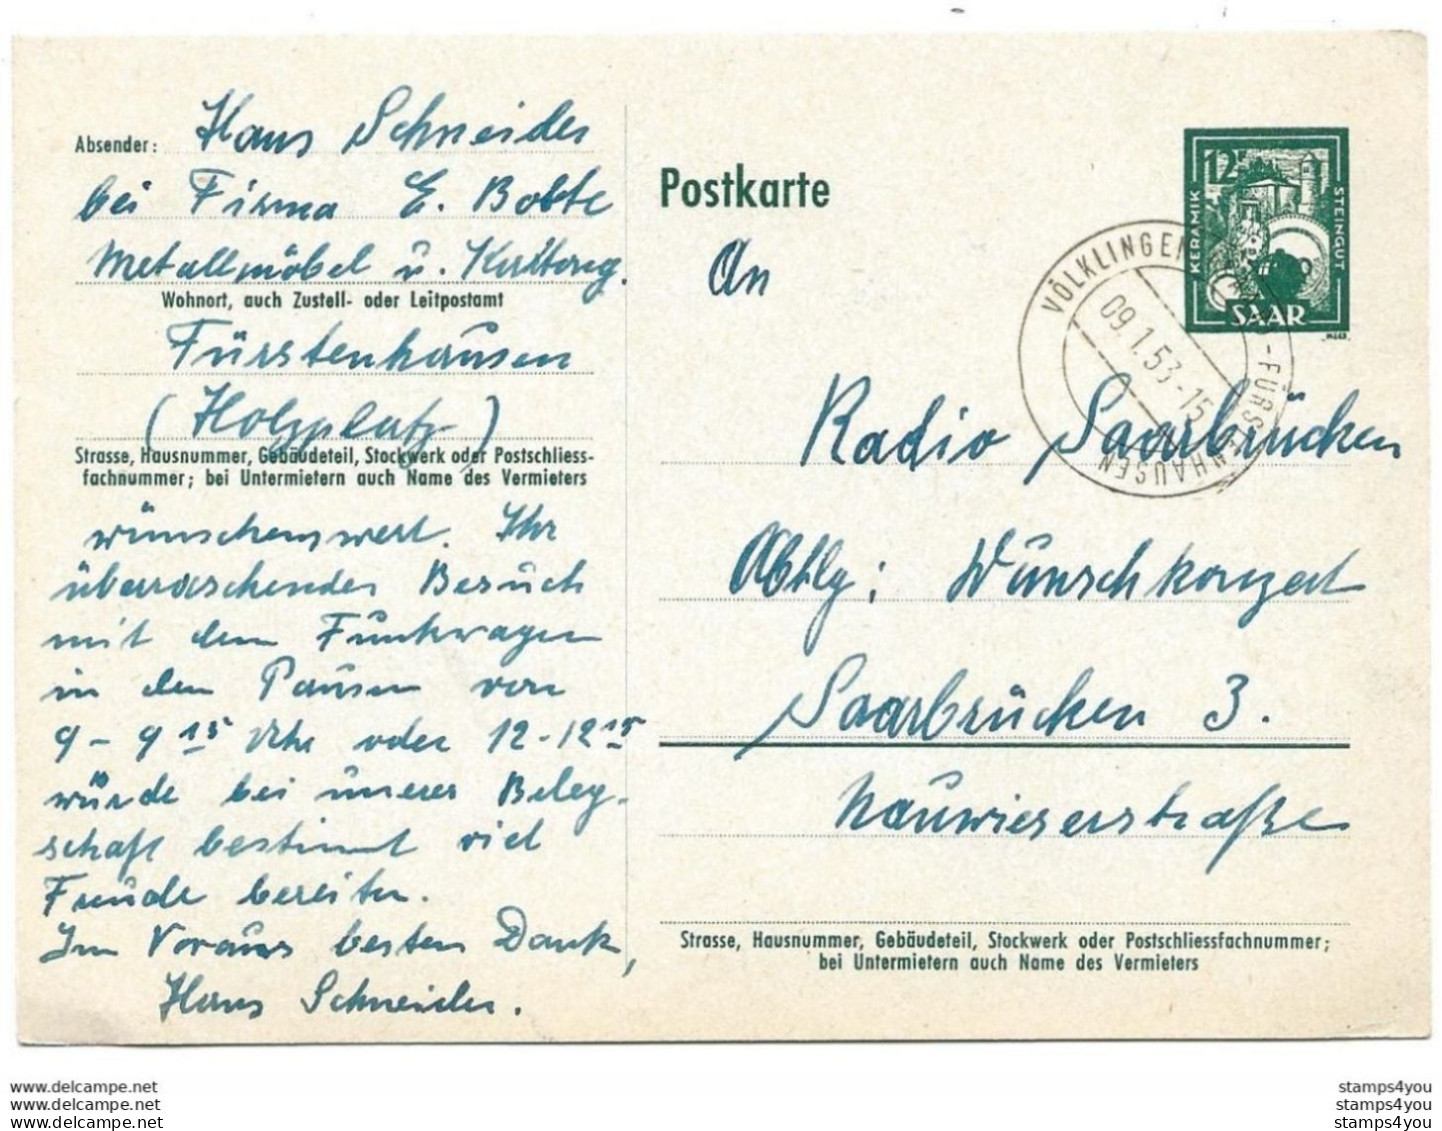 Absender: Hans Schneider
bei Firma E. Bolte
Metallmöbel u.
Wohnort, auch Zustell- oder Leitpostamt
Fürstenhausen
(Holzplatz)
Strasse, Hausnummer, Gebäudeteil, Stockwerk oder Postschliess-
fachnummer; bei Untermietern auch Name des Vermieters
wünschenswert. Ihr
überraschender Besuch
mit dem Funkwagen
in den Pausen von
9 - 9 15 Uhr oder 12 - 12 15
würde bei unserer Beleg-
schaft bestimmt viel
Freude bereiten.
Im Voraus besten Dank,
Hans Schneider.
Postkarte
12F
KERAMIK
STEINGUT
SAAR
VÖLKLINGEN
09.1.53.-15
-FÜRSTENHAUSEN
An
Radio Saarbrücken
Abtlg: Wunschkonzert
Saarbrücken 3.
Nauwieserstraße
Strasse, Hausnummer, Gebäudeteil, Stockwerk oder Postschliessfachnummer;
bei Untermietern auch Name des Vermieters
www.delcampe.net
www.delcampe.net
www.delcampe.net
stamps4you
stamps4you
stamps4you